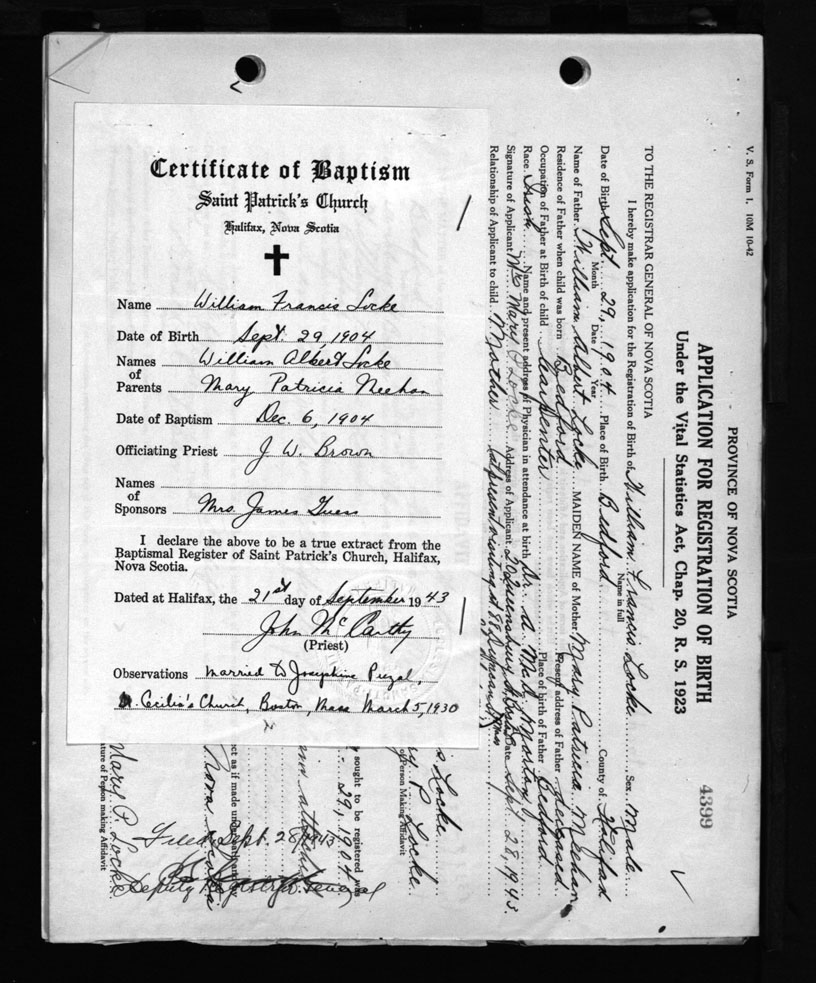 Certificate of Baptism
Saint Patrick's Church
Halifax, Nova Scotia
Name William Francis Locke
Date of Birth Sept. 29, 1904
Names William Albert Locke
of
Parents Mary Patricia Meehan
Date of Baptism Dec. 6, 1904
Officiating Priest J. W. Brown
Names
of
Sponsors Mrs. James Guess
I declare the above to be a true extract from the
Baptismal Register of Saint Patrick's Church, Halifax,
Nova Scotia.
Dated at Halifax, the 21st day of September 1943
John McCarthy
(Priest)
Observations Married to Josephine
St. Cecilia's Church, Boston, Mass March 5, 1930
V. S. Form 1. 10M 10-42
PROVINCE OF NOVA SCOTIA
APPLICATION FOR REGISTRATION OF BIRTH
Under the Vital Statistics Act, Chap. 20, R. S. 1923
4399
TO THE REGISTRAR GENERAL OF NOVA SCOTIA
I hereby make application for the Registration of Birth of William Francis Locke Sex Male
Name in full
Date of Birth Sept. 29, 1904 Place of Birth Bedford County of Halifax
Month Date Year
Name of Father William Albert Locke MAIDEN NAME of Mother Mary Patricia Meehan
Residence of Father when child was born Bedford Present address of Father deceased
Occupation of Father at Birth of child Carpenter Place of birth of Father Bedford
Race Irish Name and present address of Physician in attendance at birth Dr. Morton
Signature of Applicant Mrs Mary P Locke Address of Applicant 20 Queensbury St. Date Sept. 28, 1943.
Relationship of Applicant to child Mother at present visiting at
s Locke
y P. Locke
of Person Making Affidavit
y sought to be registered was
29, 1904
ect as if made under
Nova Scotia
Mary P. Locke
ature of Person making Affidavit
Filed Sept. 28, 1943
Deputy Registrar General